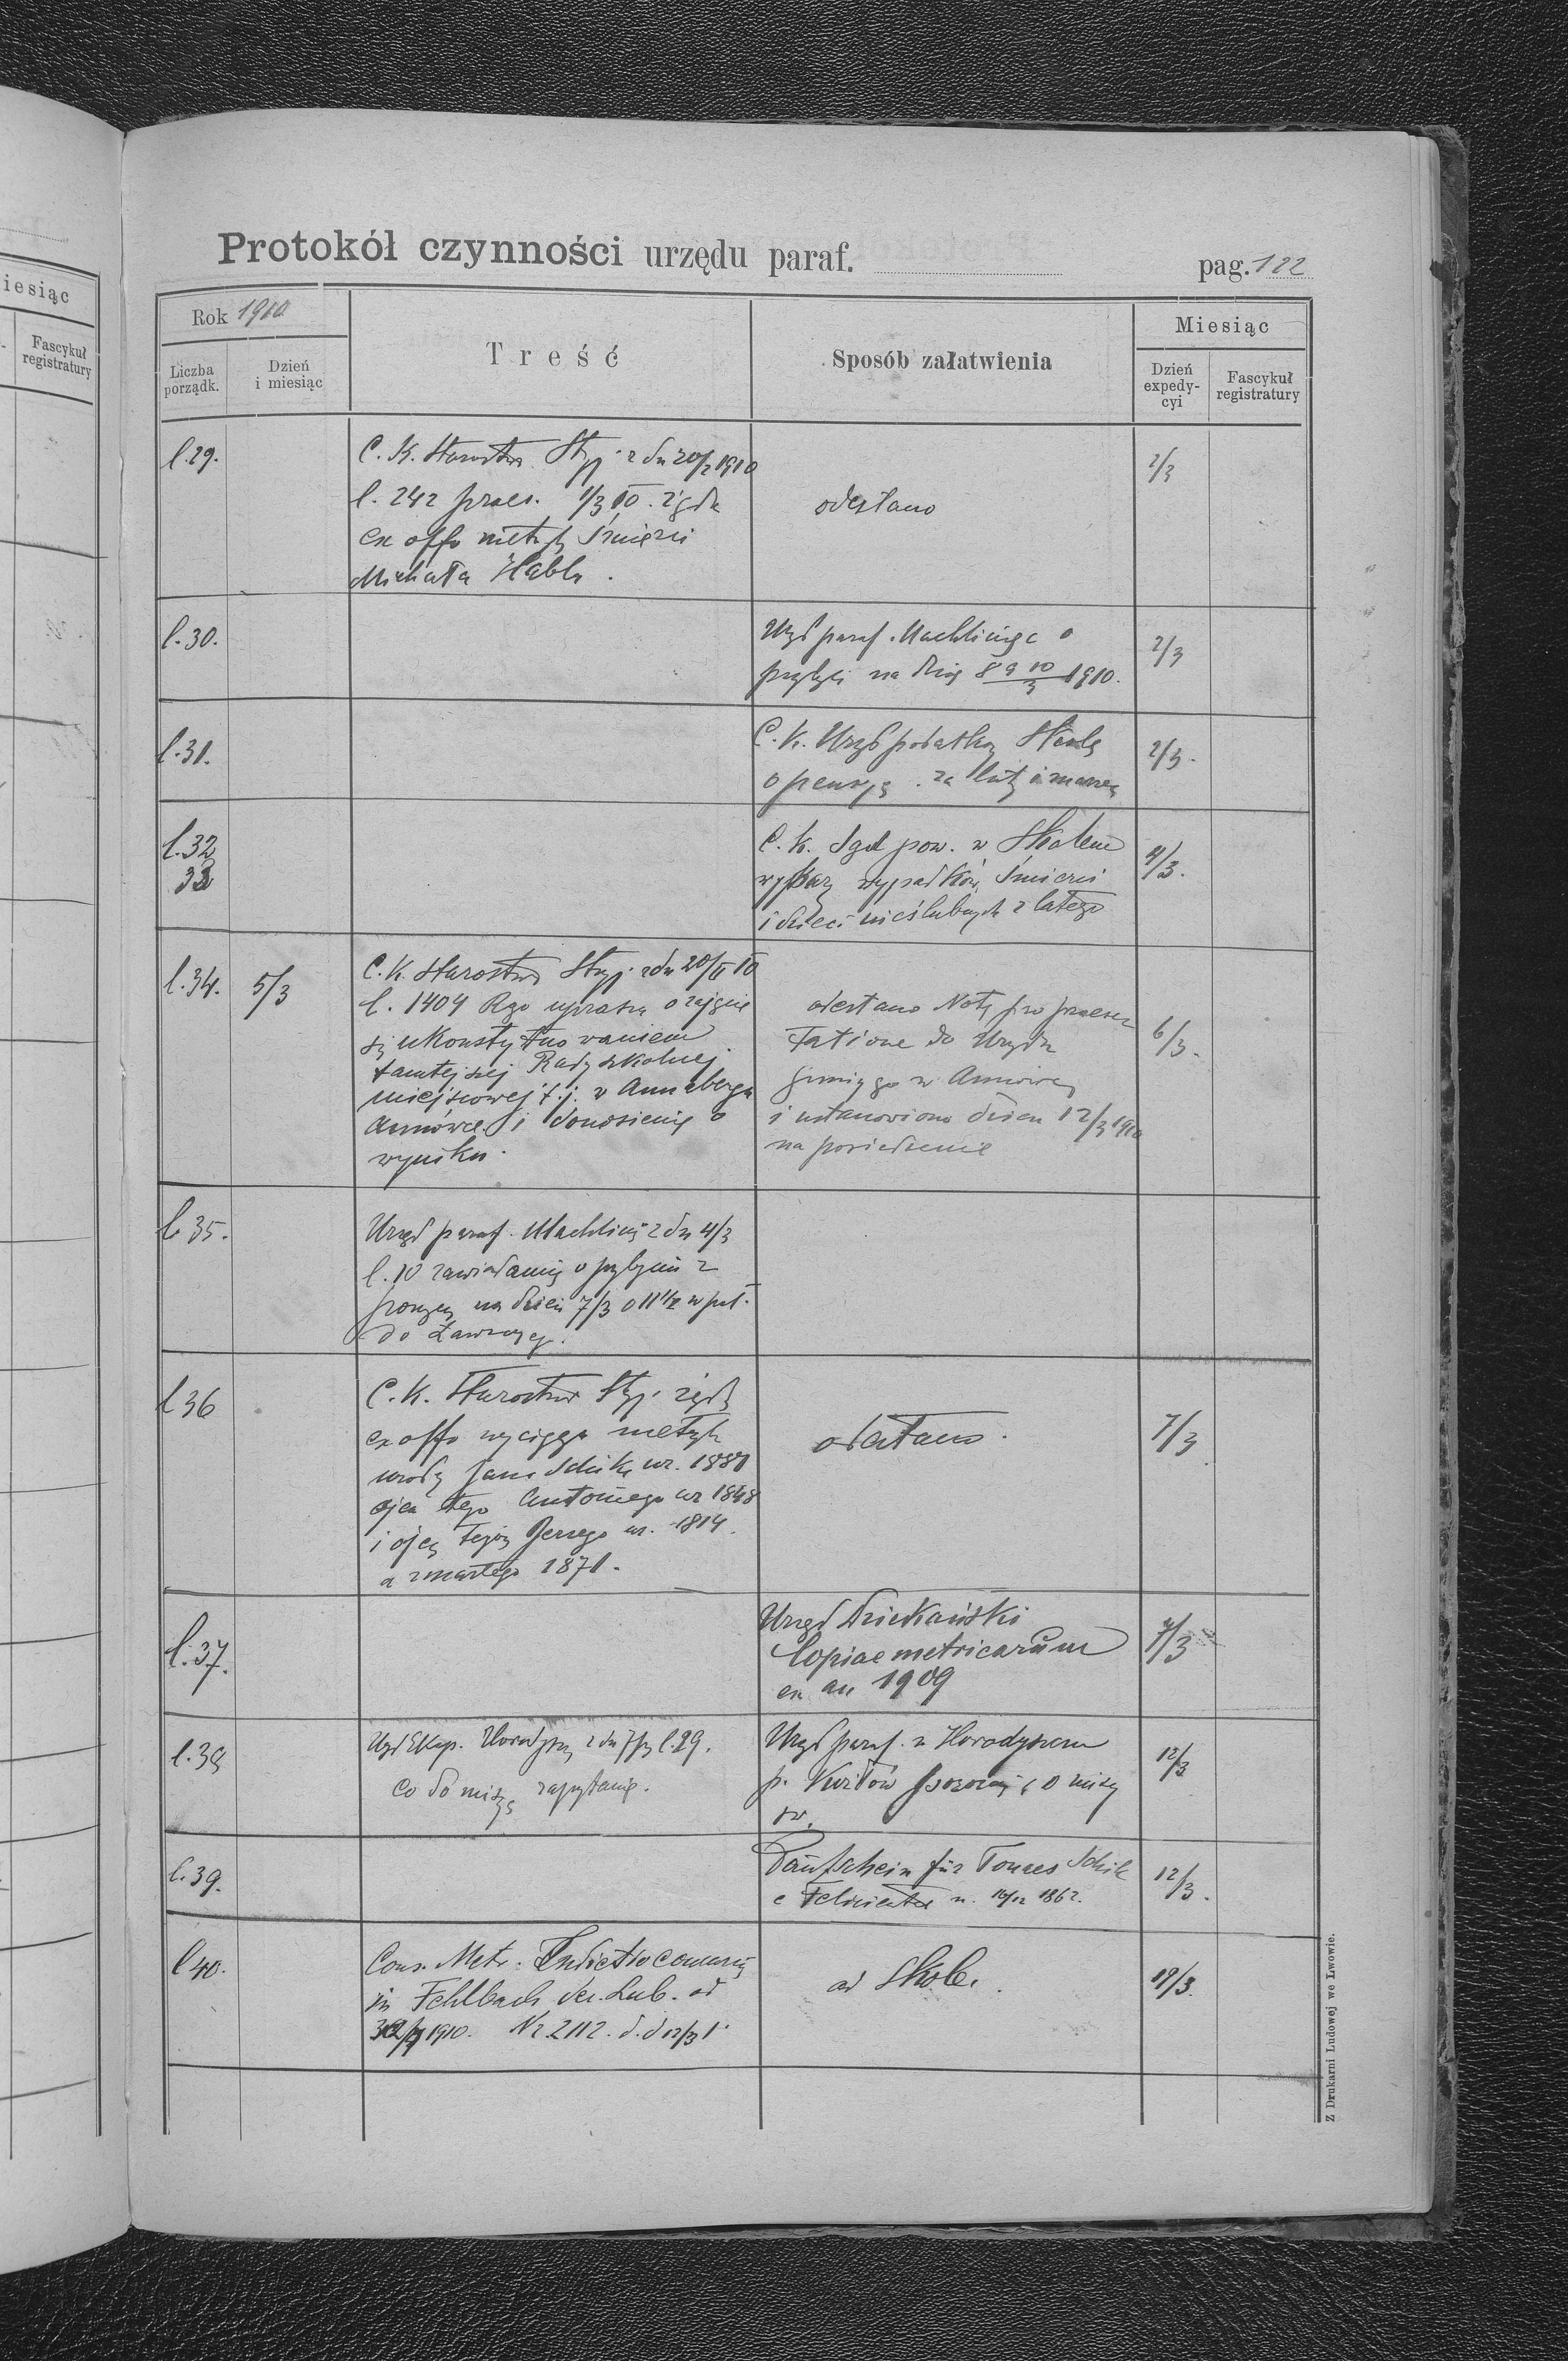 iesiąc
Fascykuł
registratury
Protokół czynności urzędu paraf.
pag. 122
Rok 1910
Miesiąc
Liczba
porządk.
Dzień
i miesiąc
Treść
Sposób załatwienia
Dzień
expedy-
cyi
Fascykuł
registratury
l. 29.
C. K. Starostwo Stryj z dn 20/2 1910
l. 242 praes. 1/3 10. żąda
ex offo metryk śmierci
Michała Habla.
odesłano
2/3
l. 30.
Urząd paraf. Machliniec o
przybyci na dnię 8 9 10/3 1910.
2/3
l. 31.
C. K. Urząd podatkowy Skole
o pensyę za luty i marzec
2/3.
l. 32
33
C. k. Sąd pow. w Skolem
wykazy wypadków śmierci
i dzieci nieślubnych z lutego
4/3.
l. 34.
5/3
C. K. Starostwo Stryj z dn 20/II 10
l. 1404 Rgo uprasza o zajęcie
się ukonstytuowaniem
tamtejszej Rady szkolnej
miejscowej t. j. w Annaberga
Annówce i doniesienie o
wyniku.
odesłano Notę pro praesen
tatione do Urzędu
gminnego w Annówce
i ustanowiono dzien 12/3 1910
na posiedzenie
6/3.
l. 35.
Urząd paraf. Machliniec z dn 4/3
l. 10 zawiadamia o przybyciu z
na dzień 7/3 o 11 1/2 w poł.
do Ławoczne.
l 36
C. K. Starostwo Stryj. żąda
ex offo wyciągu metryk
urodz Jana Schika ur. 1881
ojca tego Antoniego ur 1848
i ojca tegoż Jerzego ur. 1814
a zmarłego 1871.
odesłano.
7/3
l. 37.
Urząd Dziekański
Copiae metricarum
ex an 1909
7/3
l. 38
Urząd Eksp. Horodyszcze z dn l. 29.
co do mszy zapytanie.
Urząd paraf. w Horodyszcze
p. o mszy
św.
12/3
l. 39.
Taufschein für Schik
e Felizienthal n. 16/12 1862.
12/3.
l 40.
Cons. Metr.
in Fehlbach
1910. Nr. 2112. d. d 12/3
ad Skole.
19/3.
Z Drukarni Ludowej we Lwowie.